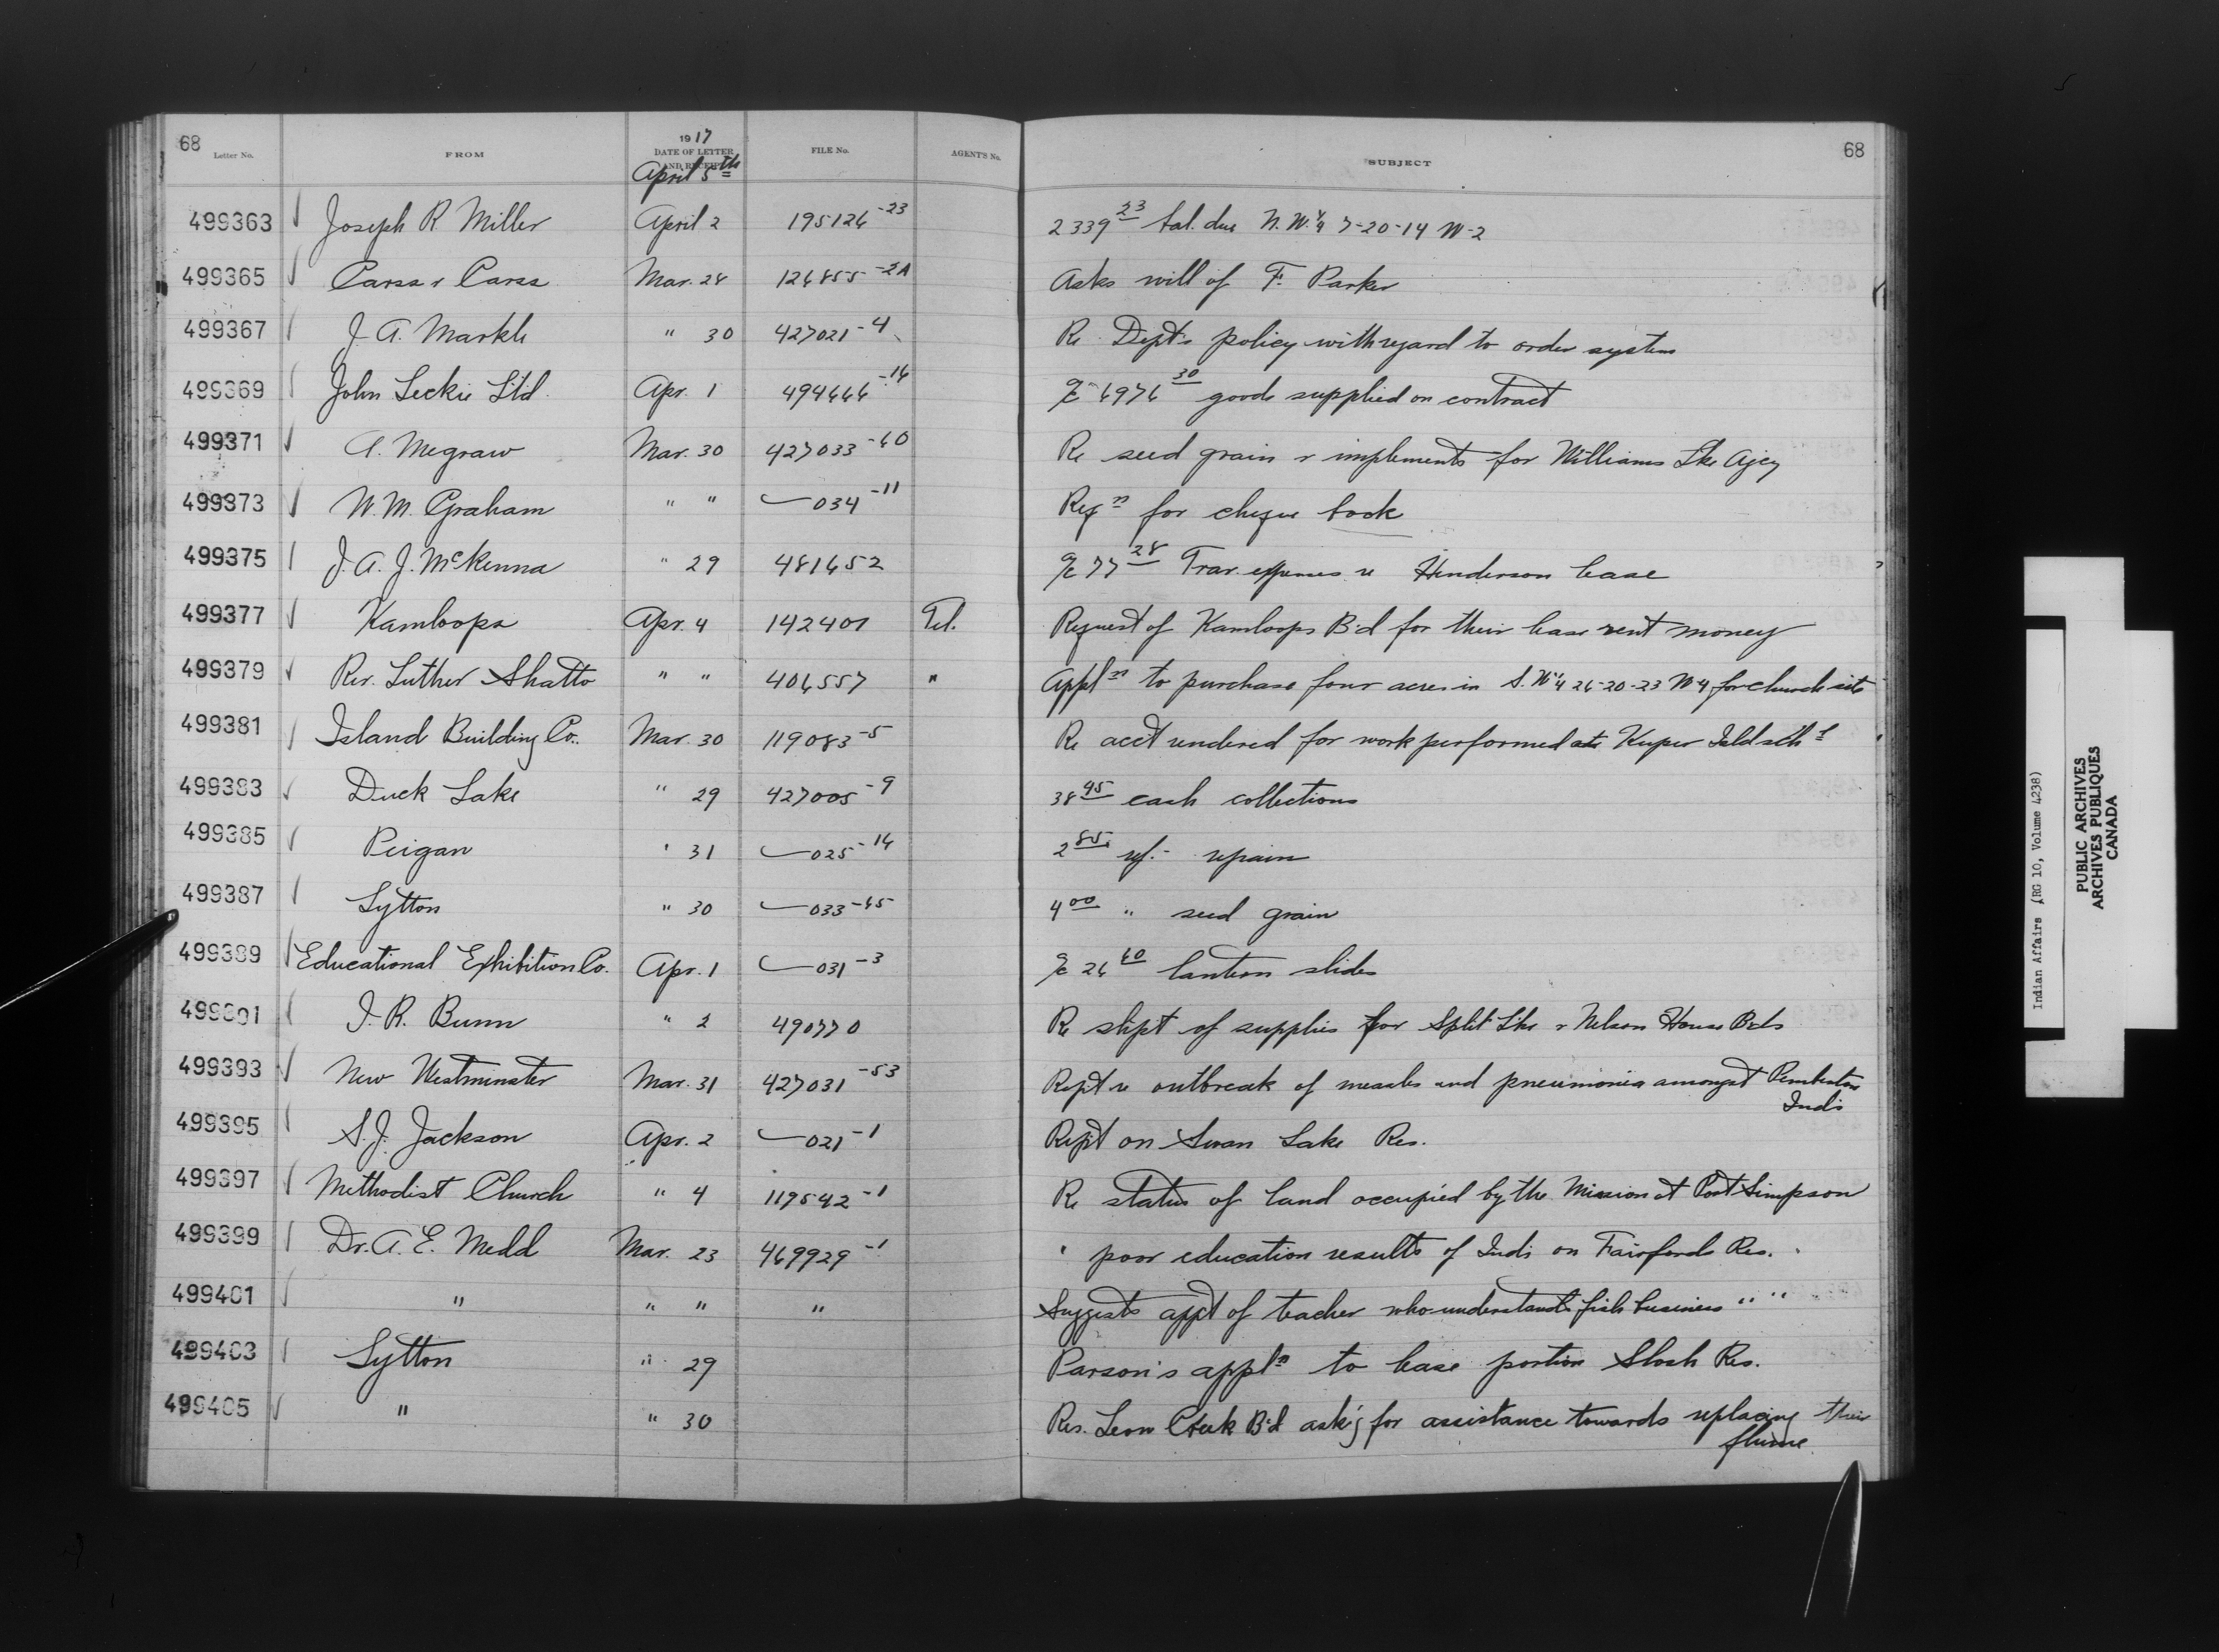 68
Letter No. FROM 1917 DATE OF LETTER AND RECEIPT FILE No. AGENT'S No. SUBJECT 68
April 5th
499363 Joseph R Miller April 2 195126-23 2339 23 bal. due N.W.¼ 7-20-14 W-2
499365 Mar. 28 126855-2A Asks will of F. Parker
499367 J. A. Markle " 30 427021-4 Re Dept's policy with regard to order system
499369 John Leckie Ltd. Apr. 1 494666-16 a/c 6976 30 goods supplied on contract
499371 A. Megraw Mar. 30 427033-60 Re seed grain & implements for Williams Lke Agcy
499373 W. M. Graham " " 034-11 Reqn for cheque book
499375 J. A. J. McKenna " 29 481652 a/c 77 28 Trav. expenses re Henderson lease
499377 Kamloops Apr. 4 142401 Tel. Request of Kamloops B'd for their lease rent money
499379 Rev. Luther Shatto " " 406557 " Appln to purchase four acres in S.W¼ 26-20-23 W4 for church site
499381 Island Building Co. Mar. 30 119083-5 Re acct rendered for work performed at Kuper Isld schl
499383 Duck Lake " 29 427005-9 38 95 cash collections
499385 Peigan " 31 025-16 2 85 rf. - repairs
499387 Lytton " 30 033-65 4 00 " seed grain
499389 Educational Exhibition Co. Apr. 1 031-3 a/c 26 60 lantern slides
499391 J. R. Bunn " 2 490770 Re shpt of supplies for Split Lke & Nelson House Bds
499393 New Westminster Mar. 31 427031-53 Rept re outbreak of measles and pneumonia amongst Pemberton
Inds
499395 S. J. Jackson Apr. 2 021-1 Rept on Swan Lake Res.
499397 Methodist Church " 4 119542-1 Re status of land occupied by the Mission at Port Simpson
499399 Dr. A. E. Medd Mar. 23 469929-1 " poor education results of Inds on Fairford Res.
499401 " " " " Suggests appt of teacher who understands fish business " "
499403 Lytton " 29 Parson's appln to lease portion Slosh Res.
499405 " " 30 Res. Leon Creek B'd ask'g for assistance towards replacing their
flume
Indian Affairs (RG 10, Volume 4238)
PUBLIC ARCHIVES
ARCHIVES PUBLIQUES
CANADA